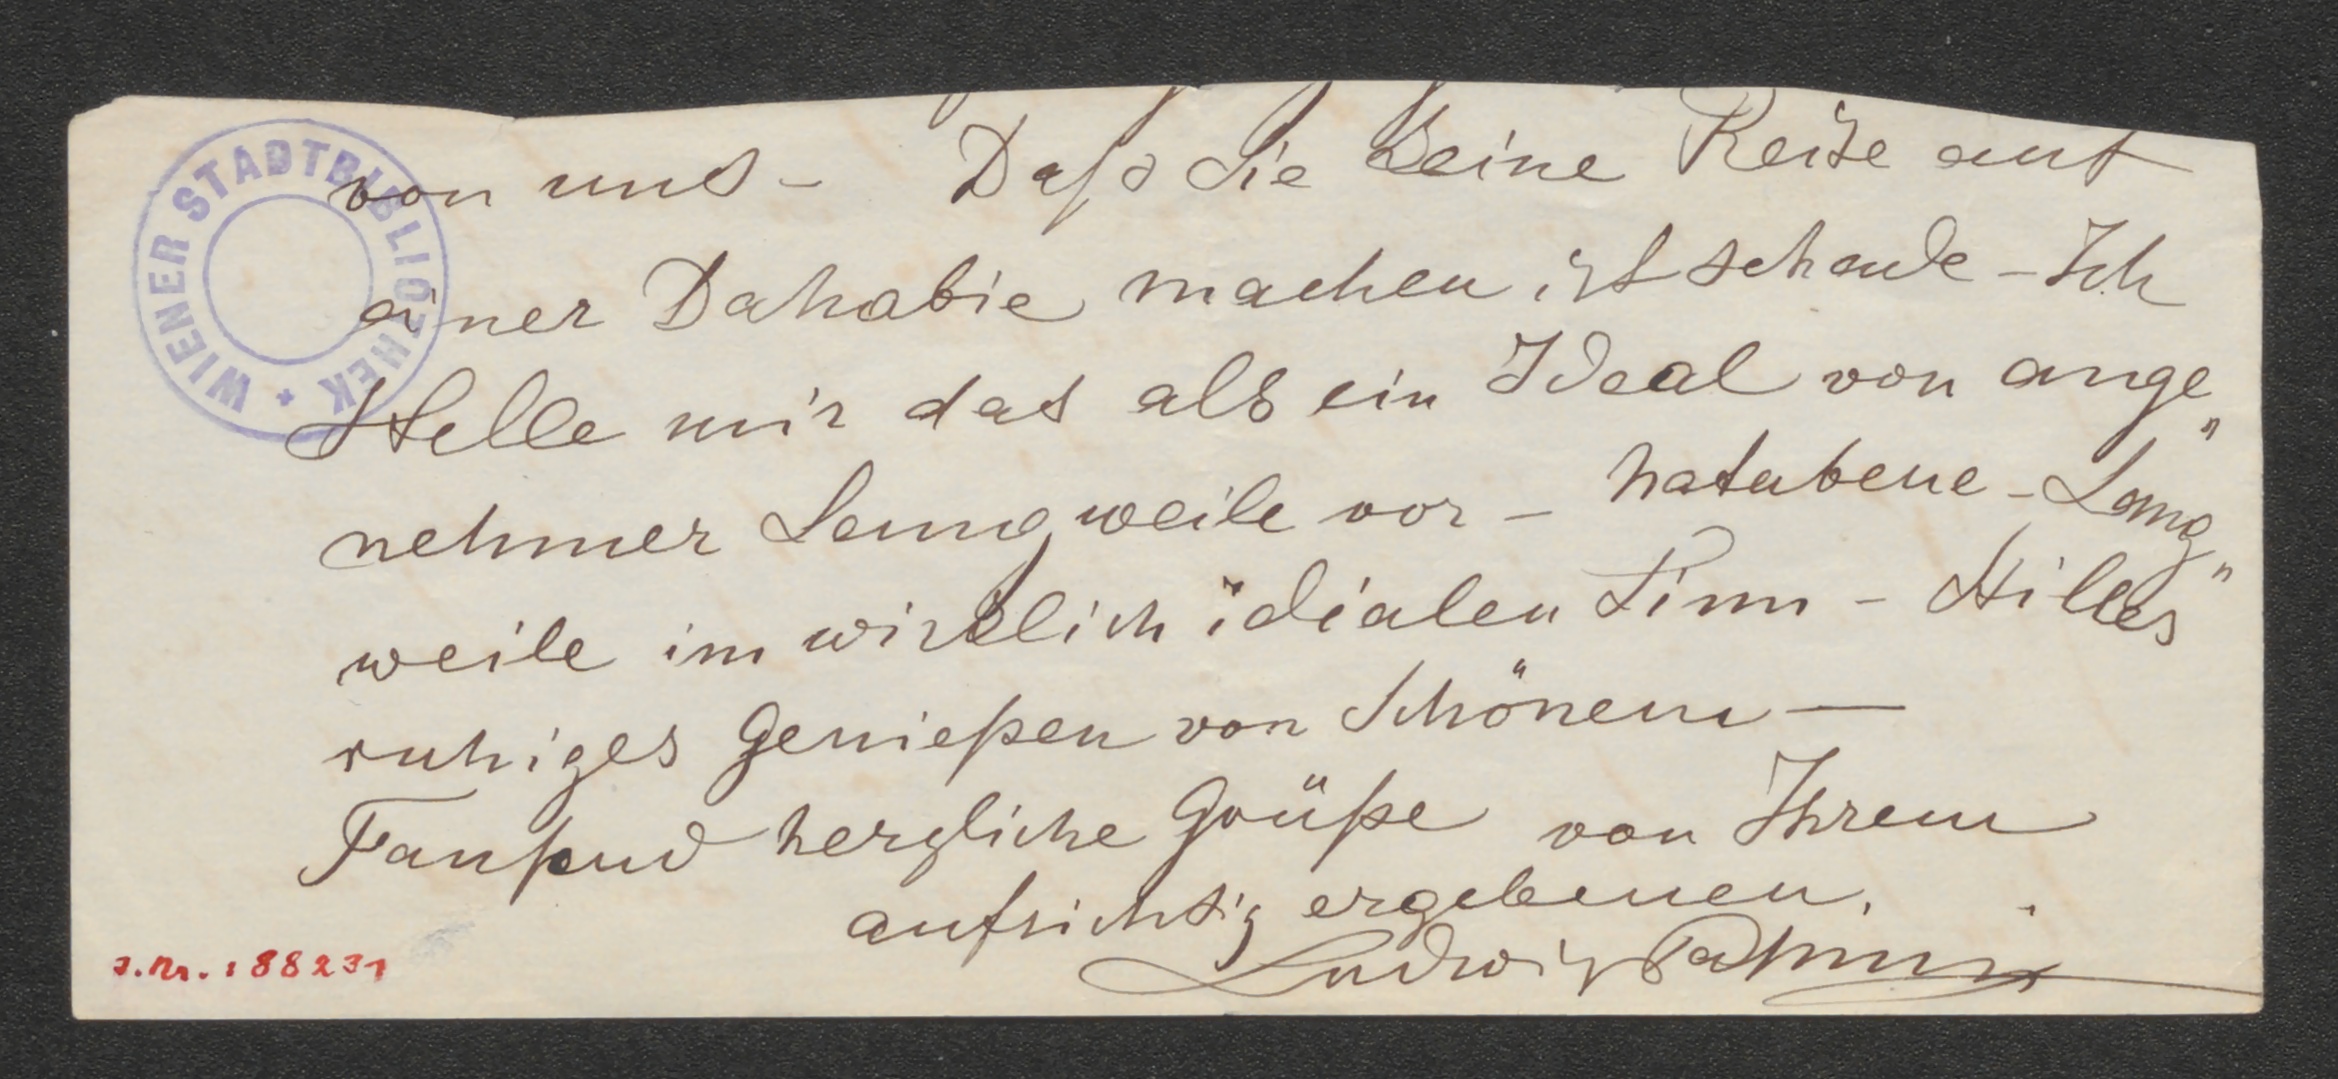 WIENER STADTBIBLIOTHEK *
von uns – Daß Sie keine Reise auf
einer Dahabie machen ist schade – Ich
stelle mir das als ein Ideal von ange„
nehmer Langweile vor – notabene – Lang„
weile im wirklich idialen Sinn – Stilles
ruhiges Genießen von Schönem —
Tausend herzliche Grüße von Ihrem
aufrichtig ergebenen.
Ludwig
J.Nr.: 88231